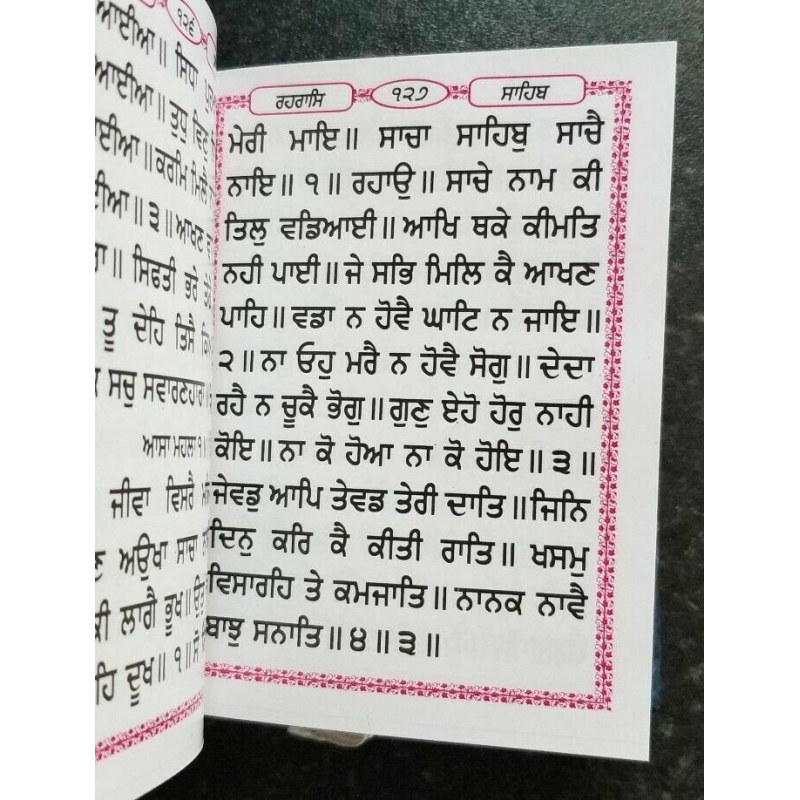 ੧੨੬
ਆਈਆ॥ ਸਿਧਾ
ਆਈਆ॥ ਤੁਧੁ ਵਿਣੁ
ਆਈਆ॥ ਕਰਮਿ ਮਿਲੈ
॥੩॥ ਆਖਣ
॥ ਸਿਫਤੀ ਭਰੇ
ਤੂ ਦੇਹਿ ਤਿਸੈ
ਸਚੁ ਸਵਾਰਣਹਾਰਾ॥
ਆਸਾ ਮਹਲਾ ੧॥
ਜੀਵਾ ਵਿਸਰੈ
ਅਉਖਾ ਸਾਚਾ
ਕੀ ਲਾਗੈ ਭੂਖ॥
ਦੂਖ॥੧॥
ਰਹਰਾਸਿ ੧੨੭ ਸਾਹਿਬ
ਮੇਰੀ ਮਾਇ॥ ਸਾਚਾ ਸਾਹਿਬੁ ਸਾਚੈ
ਨਾਇ॥੧॥ ਰਹਾਉ॥ ਸਾਚੇ ਨਾਮ ਕੀ
ਤਿਲੁ ਵਡਿਆਈ॥ ਆਖਿ ਥਕੇ ਕੀਮਤਿ
ਨਹੀ ਪਾਈ॥ ਜੇ ਸਭਿ ਮਿਲਿ ਕੈ ਆਖਣ
ਪਾਹਿ॥ ਵਡਾ ਨ ਹੋਵੈ ਘਾਟਿ ਨ ਜਾਇ॥
੨॥ ਨਾ ਓਹੁ ਮਰੈ ਨ ਹੋਵੈ ਸੋਗੁ॥ ਦੇਦਾ
ਰਹੈ ਨ ਚੂਕੈ ਭੋਗੁ॥ ਗੁਣੁ ਏਹੋ ਹੋਰੁ ਨਾਹੀ
ਕੋਇ॥ ਨਾ ਕੋ ਹੋਆ ਨਾ ਕੋ ਹੋਇ॥੩॥
ਜੇਵਡੁ ਆਪਿ ਤੇਵਡ ਤੇਰੀ ਦਾਤਿ॥ ਜਿਨਿ
ਦਿਨੁ ਕਰਿ ਕੈ ਕੀਤੀ ਰਾਤਿ॥ ਖਸਮੁ
ਵਿਸਾਰਹਿ ਤੇ ਕਮਜਾਤਿ॥ ਨਾਨਕ ਨਾਵੈ
ਬਾਝੁ ਸਨਾਤਿ॥੪॥੩॥